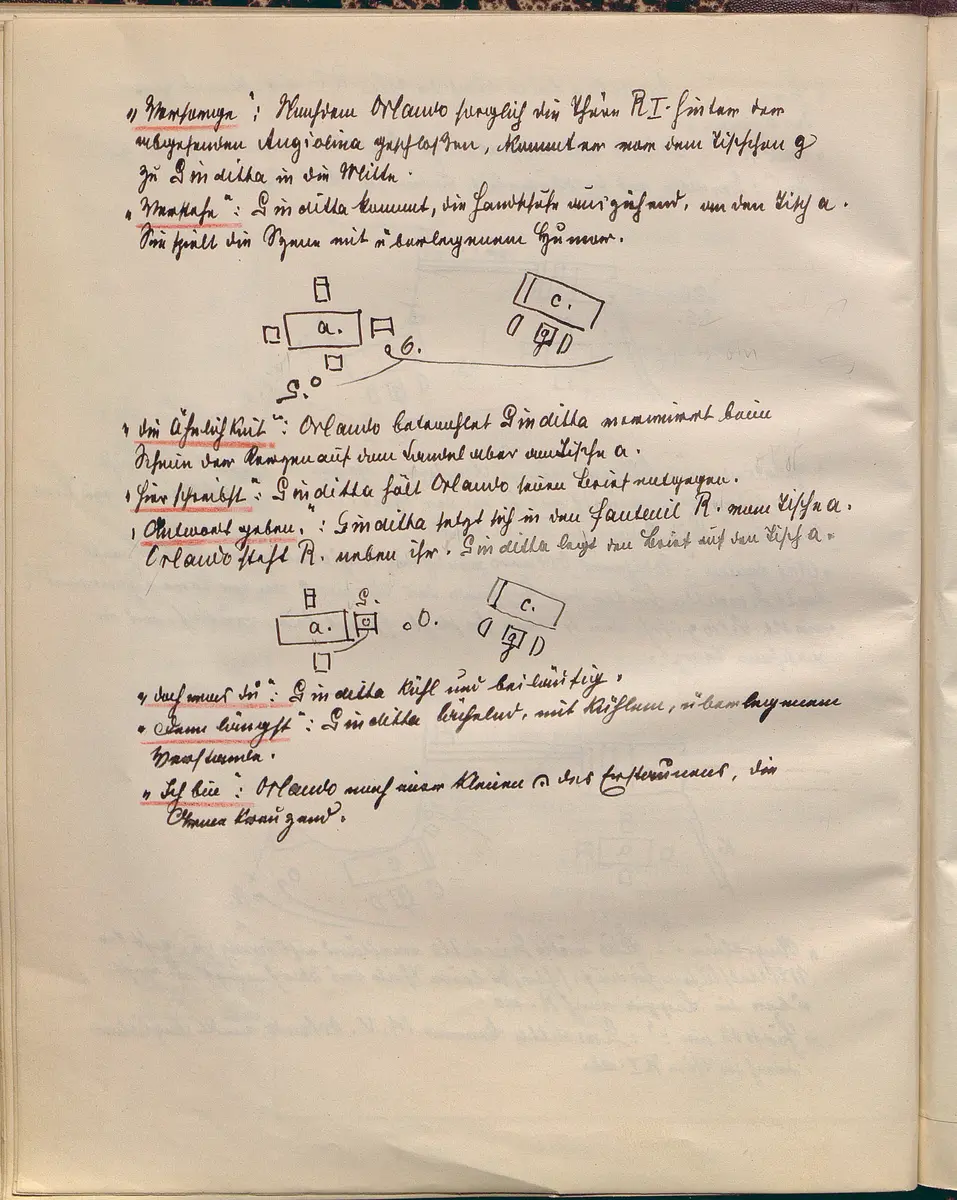 „Versorge“: Nachdem Orlando sorglich die Thüre R I. hinter der
abgehenden Angiolina geschlossen, kommt er von dem Tischchen g
zu Giuditta in die Mitte.
„Verstehe“: Giuditta kommt, die Handschuhe ausziehend, an den Tisch a.
Sie spielt die Szene mit überlegenem Humor.
a. c.
g
O.
G.
„die Ähnlichkeit“: Orlando betrachtet Giuditta beim
Schein der Kerzen auf dem am Tische a.
„hier schreibst“: Giuditta hält Orlando seinen Brief entgegen.
„Antwort geben.“: Giuditta setzt sich in den Fauteuil R. vom Tische a.
Orlando steht R. neben ihr. Giuditta legt den Brief auf den Tisch a.
G.
a. O. c.
g
„doch was du“: Giuditta kühl und beiläufig.
„denn längst“: Giuditta lächelnd, mit kühlem, überlegenem
Verstande.
„Ich bin“: Orlando nach einer kleinen 𝄐 des Erstaunens, die
Arme kreuzend.